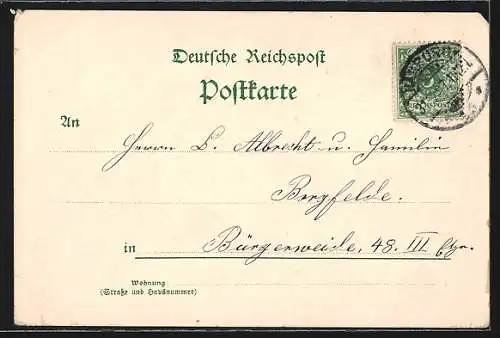 Deutsche Reichspost
Postkarte
An
Herrn L. Albrecht u. Familie
Bergfelde.
in Bürgerweide, 48. III
Wohnung
(Straße und Hausnummer)